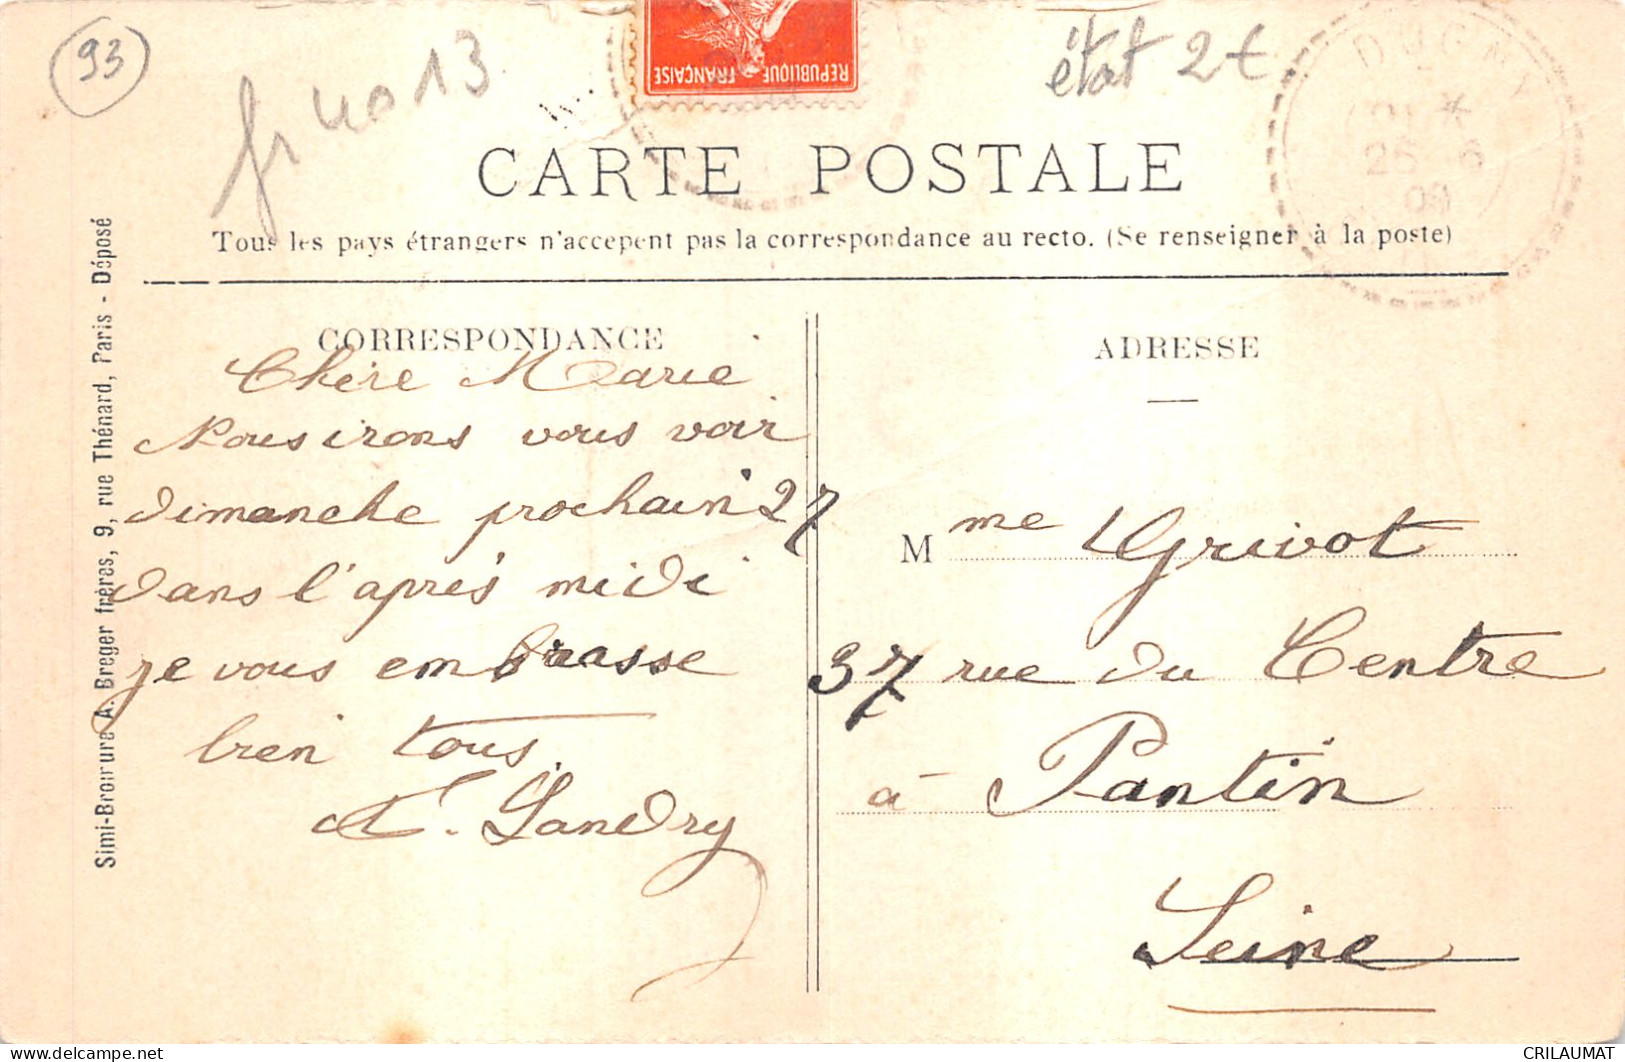 93
fr 40 13
état 2€
RÉPUBLIQUE FRANÇAISE
DUGNY
25 - 6
09
CARTE POSTALE
Tous les pays étrangers n'acceptent pas la correspondance au recto. (Se renseigner à la poste)
Simi-Bromure A. Breger frères, 9, rue Thénard, Paris - Déposé
CORRESPONDANCE
Chère Marie
Nous irons vous voir
dimanche prochain 27
dans l'après midi
je vous embrasse
bien tous
Landry
ADRESSE
Mme Grivot
37 rue du Centre
à Pantin
Seine
CRILAUMAT